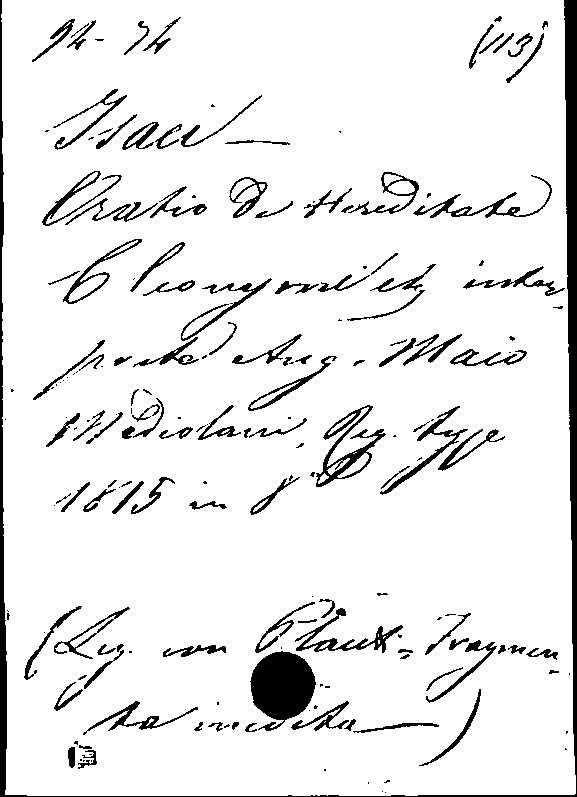 94-74 (113)
Isaei —
Oratio de Hereditate
Cleonymi etc inter-
prete Ang. Maio
Mediolani, Reg. typ
1815 in 8º
(Leg. con Plaut= Fragmen-
ta inedita —)